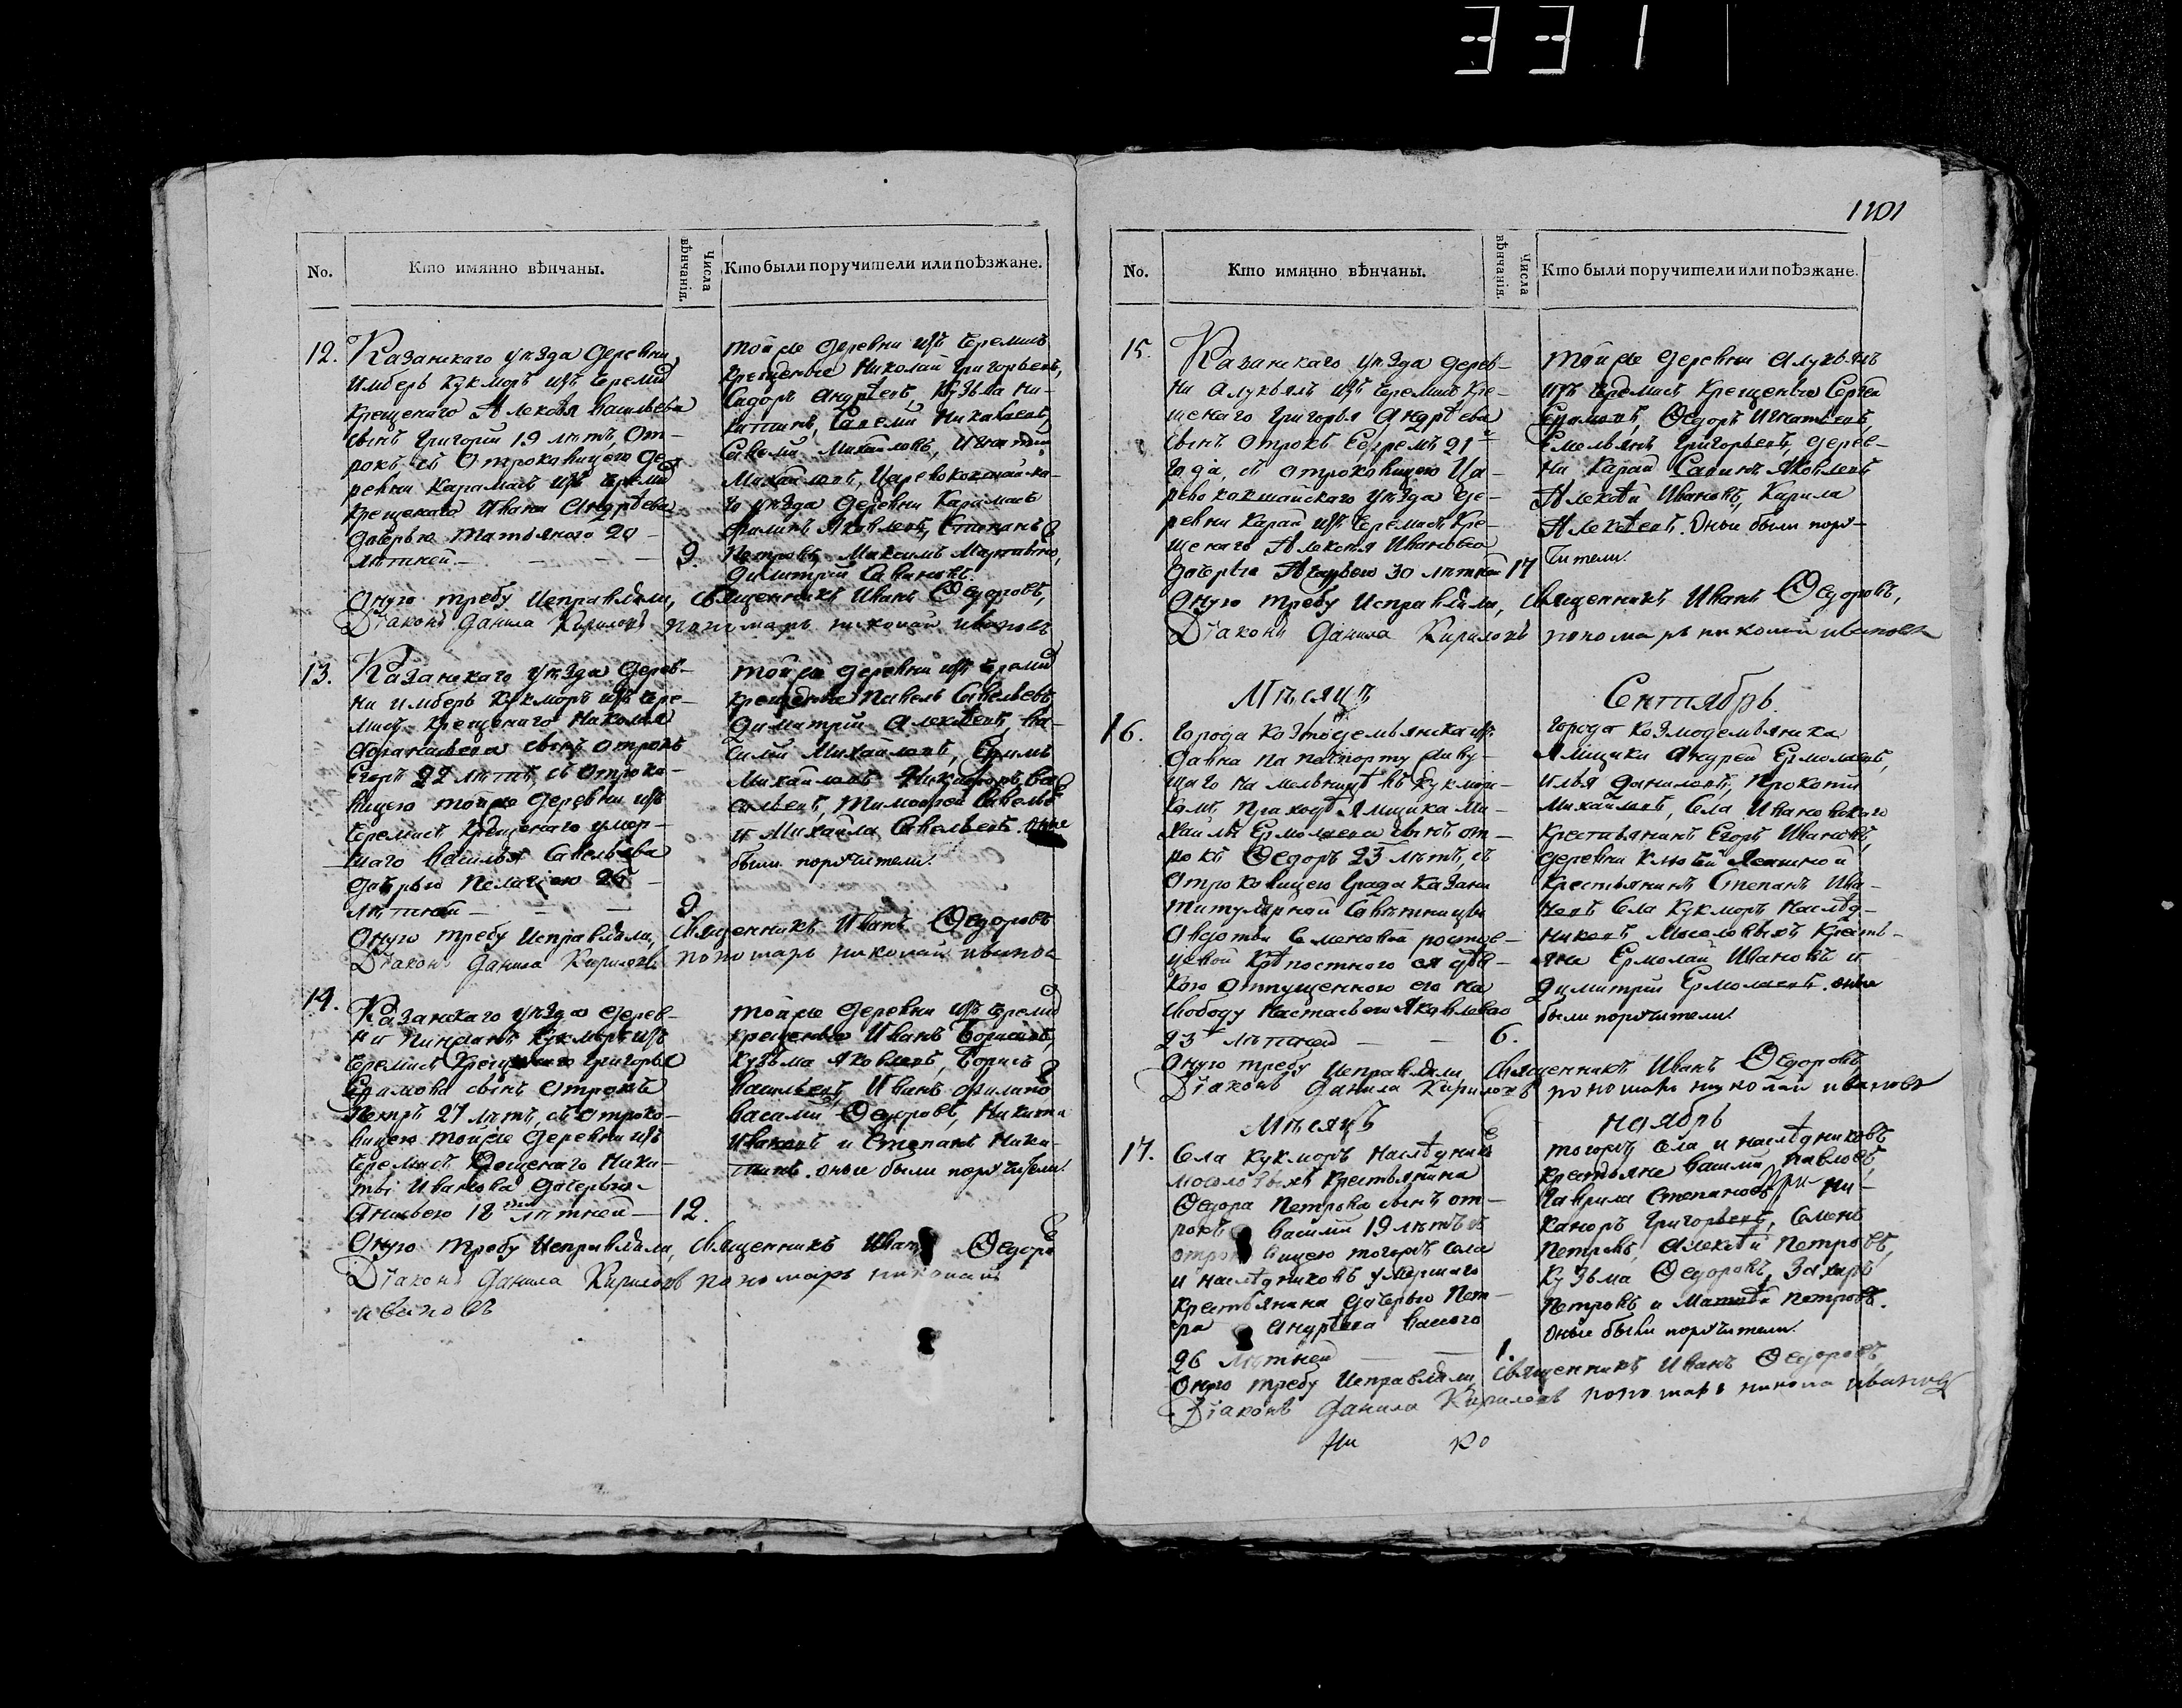 331
1101
No.
Кто имянно вѣнчаны.
Числа вѣнчанія.
Кто были поручители или поѣзжане.
12.
Казанскаго уѣзда деревни
Имберь Кукморъ изъ черемис
крещенаго Алексѣя Васильева
сынъ Григорий 19 лѣтъ, от-
рокъ съ отроковицею де-
ревни Карамасъ изъ черемис
крещенаго Ивана Андрѣева
дочерью Татьяною 20
лѣтней
9.
той же деревни изъ черемисъ
крещеные Николай Григорьевъ,
Сидоръ Андрѣевъ, Кузьма Ни-
китинъ, Николаевъ
Савелий Михайловъ, Игнатий
Михайловъ, Царевококшайска-
го уѣзда деревни Карамасъ
Яковлевъ, Степанъ
Петровъ, Максимъ
Димитрий
Оную требу исправляли, Священникъ Иванъ Ѳедоровъ,
Діаконъ Данила Кириловъ пономарь николай ивановъ
13.
Казанскаго уѣзда дерев-
ни Имберь Кукморъ изъ чере-
мисъ крещенаго Николая
Афанасьева сынъ отрокъ
Егоръ 22 лѣтъ, съ отроко-
вицею той же деревни изъ
черемисъ крещенаго умер-
шаго Василья Савельева
дочерью Пелагіею 25
лѣтней
9.
той же деревни изъ черемис
крещеные Павелъ Савельевъ,
Димитрий Алексѣевъ, Ва-
силий Михайловъ, Ефимъ
Михайловъ Никифоръ Ва-
сильевъ, Тимофей Савельев
и Михайла Савельевъ. оные
были поручители.
Оную требу исправляли, Священникъ Иванъ Ѳедоровъ
Діаконъ Данила Кириловъ пономарь николай иванов
14.
Казанскаго уѣзда дерев-
ни Кукморъ изъ
черемисъ крещенаго Григорья
Ефимова сынъ отрокъ
Петръ 27 лѣтъ, съ отроко-
вицею той же деревни изъ
черемисъ крещенаго Ники-
ты Иванова дочерью
Анисьею 18 лѣтней
12.
той же деревни изъ черемис
крещеные Иванъ Борисовъ,
Кузьма Яковлевъ, Борисъ
Васильевъ, Иванъ Филипов
Василий Ѳедоровъ, Никита
Ивановъ и Степанъ Ники-
тинъ. оные были поручители.
Оную требу исправляли, Священникъ Иванъ Ѳедоровъ
Діаконъ Данила Кириловъ пономарь николай
ивановъ
No.
Кто имянно вѣнчаны.
Числа вѣнчанія.
Кто были поручители или поѣзжане.
15.
Казанскаго уѣзда дерев-
ни Алукьялъ изъ черемисъ кре-
щенаго Григорья Андрѣева
сынъ отрокъ Ефремъ 21
года, съ отроковицею Ца-
ревококшайскаго уѣзда де-
ревни Карай изъ черемисъ кре-
щенаго Алексѣя Иванова
дочерью 30 лѣтней
17
той же деревни Алукьялъ
изъ черемисъ крещеные Сергей
Ефимовъ, Ѳедоръ Игнатьевъ,
Емельянъ Григорьевъ, дерев-
ни Карай Савинъ Яковлевъ
Алексѣй Ивановъ, Кирила
Алексѣевъ. Оные были пору-
чители.
Оную требу исправляли, Священникъ Иванъ Ѳедоровъ,
Діаконъ Данила Кириловъ пономарь николай ивановъ
Мѣсяцъ Сентябрь
16.
Города Козмодемьянска из-
давна по паспорту живу-
щаго на мельницѣ въ Кукмор-
ской приходѣ Ямщика Ми-
хайлы Ермолаева сынъ от-
рокъ Ѳедоръ 23 лѣтъ, съ
отроковицею града Казани
титулярной Совѣтницы
Авдотьи Семеновой ростов-
цевой крѣпостною ея дѣв-
кою отпущенною ею на
свободу Настасьею Яковлевою
23 лѣтней
6.
города Козмодемьянска
Ямщики Андрей Ермолаевъ,
Илья Даниловъ, Прокопий
Михайловъ, Села Ивановскаго
крестьянинъ Егоръ Ивановъ,
деревни Ключей
крестьянинъ Степанъ Ива-
новъ Села Кукморъ наслѣд-
никовъ Мосоловыхъ крестья-
яне Ермолай Ивановъ и
Димитрий Ермолаевъ. оные
были поручители.
Оную требу исправляли Священникъ Иванъ Ѳедоровъ
Діаконъ Данила Кириловъ пономарь николай ивановъ
Мѣсяцъ Ноябрь
17.
Села Кукморъ наслѣдников
Мосоловыхъ крестьянина
Ѳедора Петрова сынъ от-
рокъ Василий 19 лѣтъ съ
отроковицею тогожъ села
и наслѣдниковъ умершаго
крестьянина дочерью Пет-
ра Андрѣева Васою
26 лѣтней
1.
тогожъ села и наслѣдниковъ
крестьяне Василий Павловъ,
Гаврила Степановъ, Ни-
каноръ Григорьевъ, Семенъ
Петровъ, Алексѣй Петровъ,
Кузьма Ѳедоровъ, Захаръ
Петровъ и Матвѣй Петровъ.
оные были поручители.
Оную требу исправляли Священникъ Иванъ Ѳедоровъ,
Діаконъ Данила Кириловъ пономарь никола ивановъ